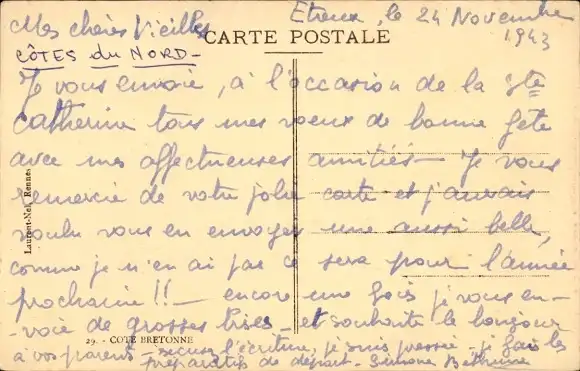 Etreux, le 24 Novembre
1943
Mes chères Vieilles
CARTE POSTALE
CÔTES du NORD-
Je vous envoie, à l'occasion de la Ste
Catherine tous mes voeux de bonne fête
avec mes affectueuses amitiés - Je vous
remercie de votre jolie carte et j'aurais
voulu vous en envoyer une aussi belle,
comme je n'en ai pas ce sera pour l'année
prochaine !! - encore une fois je vous en-
-voie de grosses bises - et souhaite le bonjour
à vos parents - excusez l'écriture, je suis pressée - je fais les
préparatifs de départ - Simone
Laurent-Nel, Rennes
29. - COTE BRETONNE